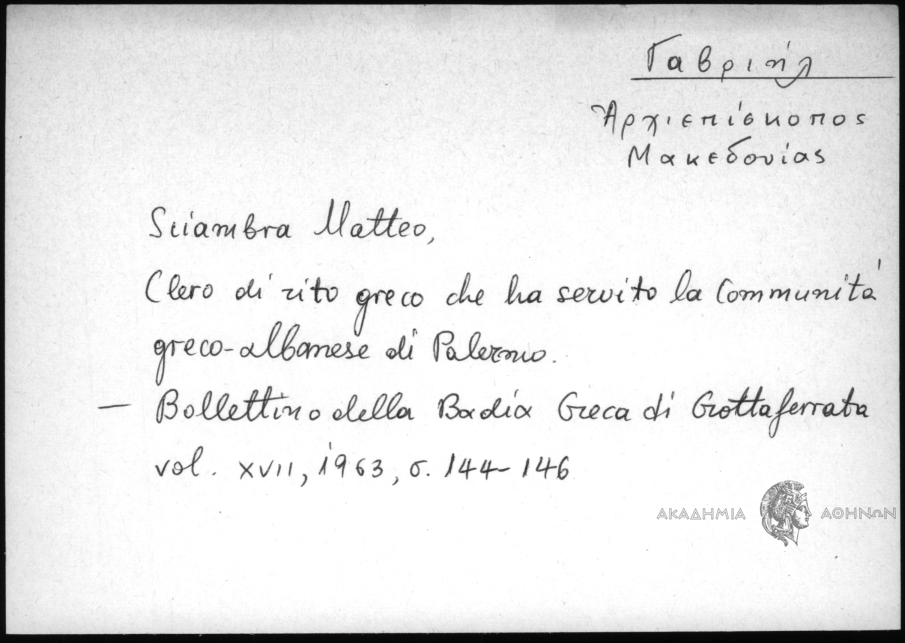 Γαβριήλ
Ἀρχιεπίσκοπος
Μακεδονίας
Sciambra Matteo,
Clero di rito greco che ha servito la Communità
greco-albanese di Palermo.
— Bollettino della Badia Greca di Grottaferrata
vol. XVII, 1963, σ. 144-146
ΑΚΑΔΗΜΙΑ ΑΘΗΝΩΝ